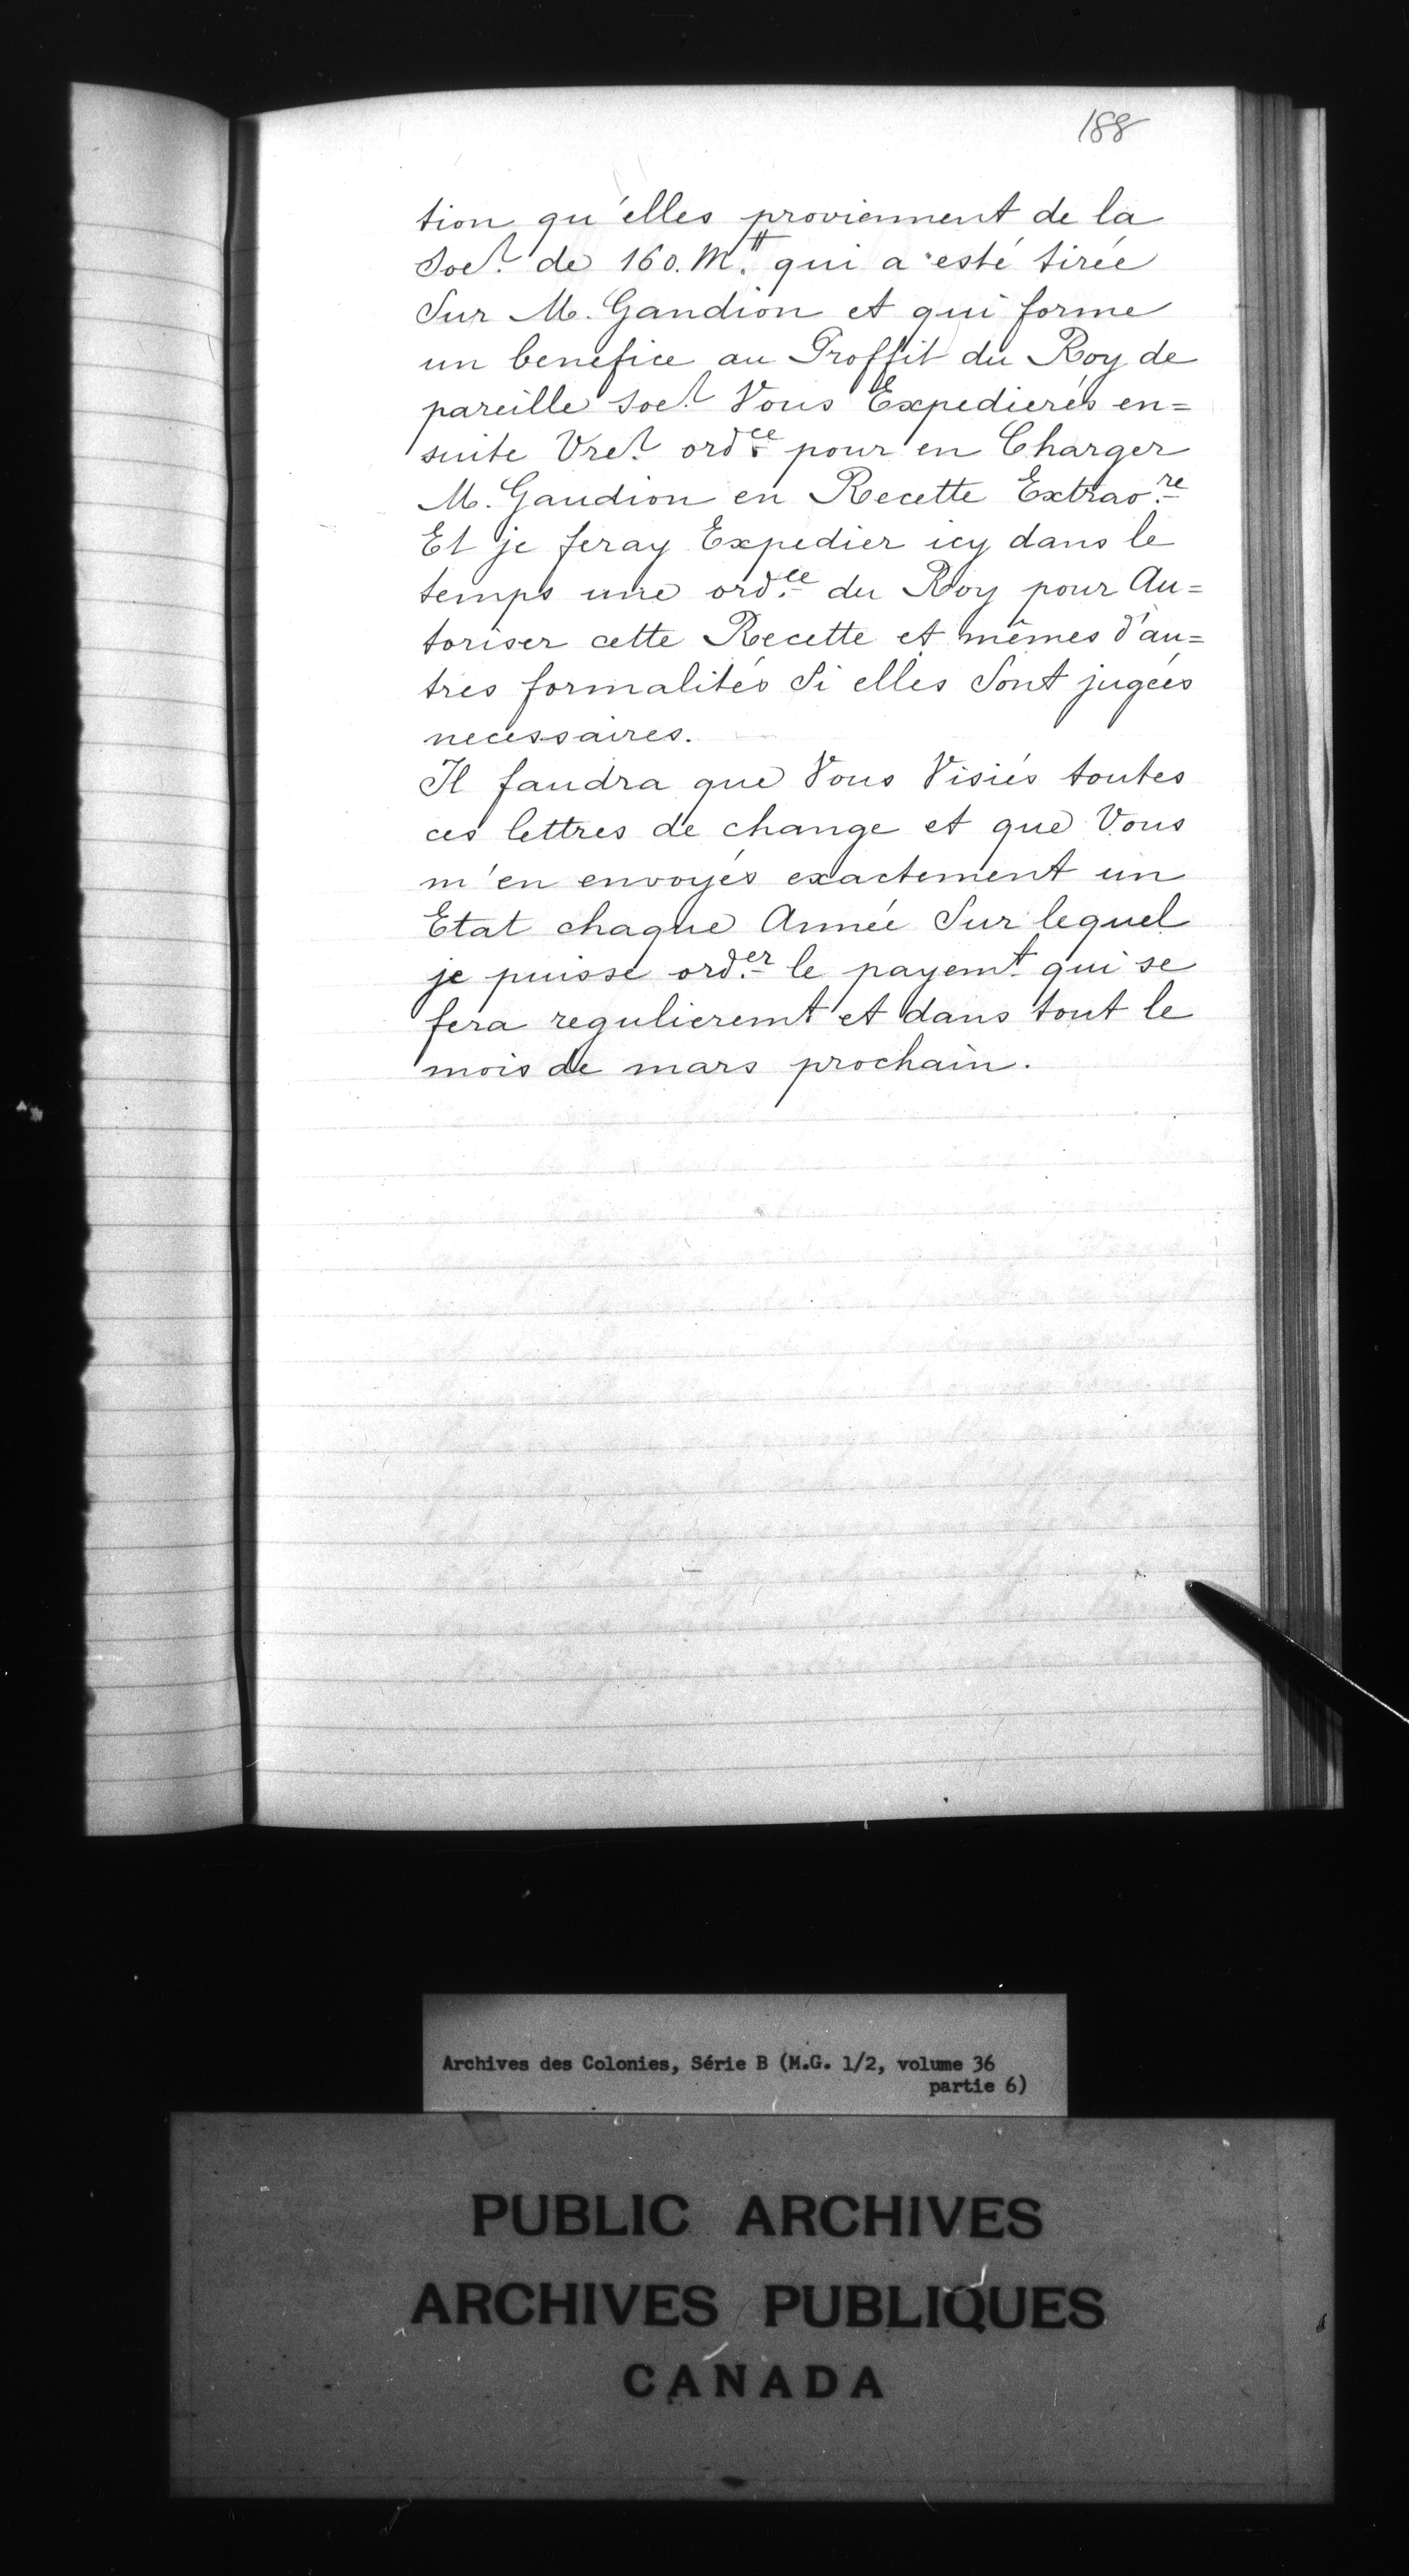 188
tion qu'elles proviennent de la
soe. de 160. M.₶ qui a esté tirée
Sur M. Gandion et qui forme
un benefice au Proffit du Roy de
pareille soe. Vous Expedierés en=
suite Vre. ord.ce pour en Charger
M. Gaudion en Recette Extrao.re
Et je feray Expedier icy dans le
temps une ord.ce du Roy pour Au=
toriser cette Recette et mêmes d'au=
tres formalités Si elles Sont jugées
necessaires.
Il faudra que Vous Visiés toutes
ces lettres de change et que Vous
m'en envoyés exactement un
Etat chaque Année Sur lequel
je puisse ord.er le payemt. qui se
fera regulieremt et dans tout le
mois de mars prochain.
Archives des Colonies, Série B (M.G. 1/2, volume 36
partie 6)
PUBLIC ARCHIVES
ARCHIVES PUBLIQUES
CANADA